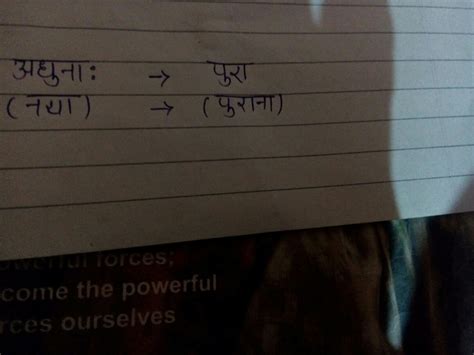 अधुनाः → पुरा
(नया) → (पुराना)
forces;
come the powerful
rces ourselves